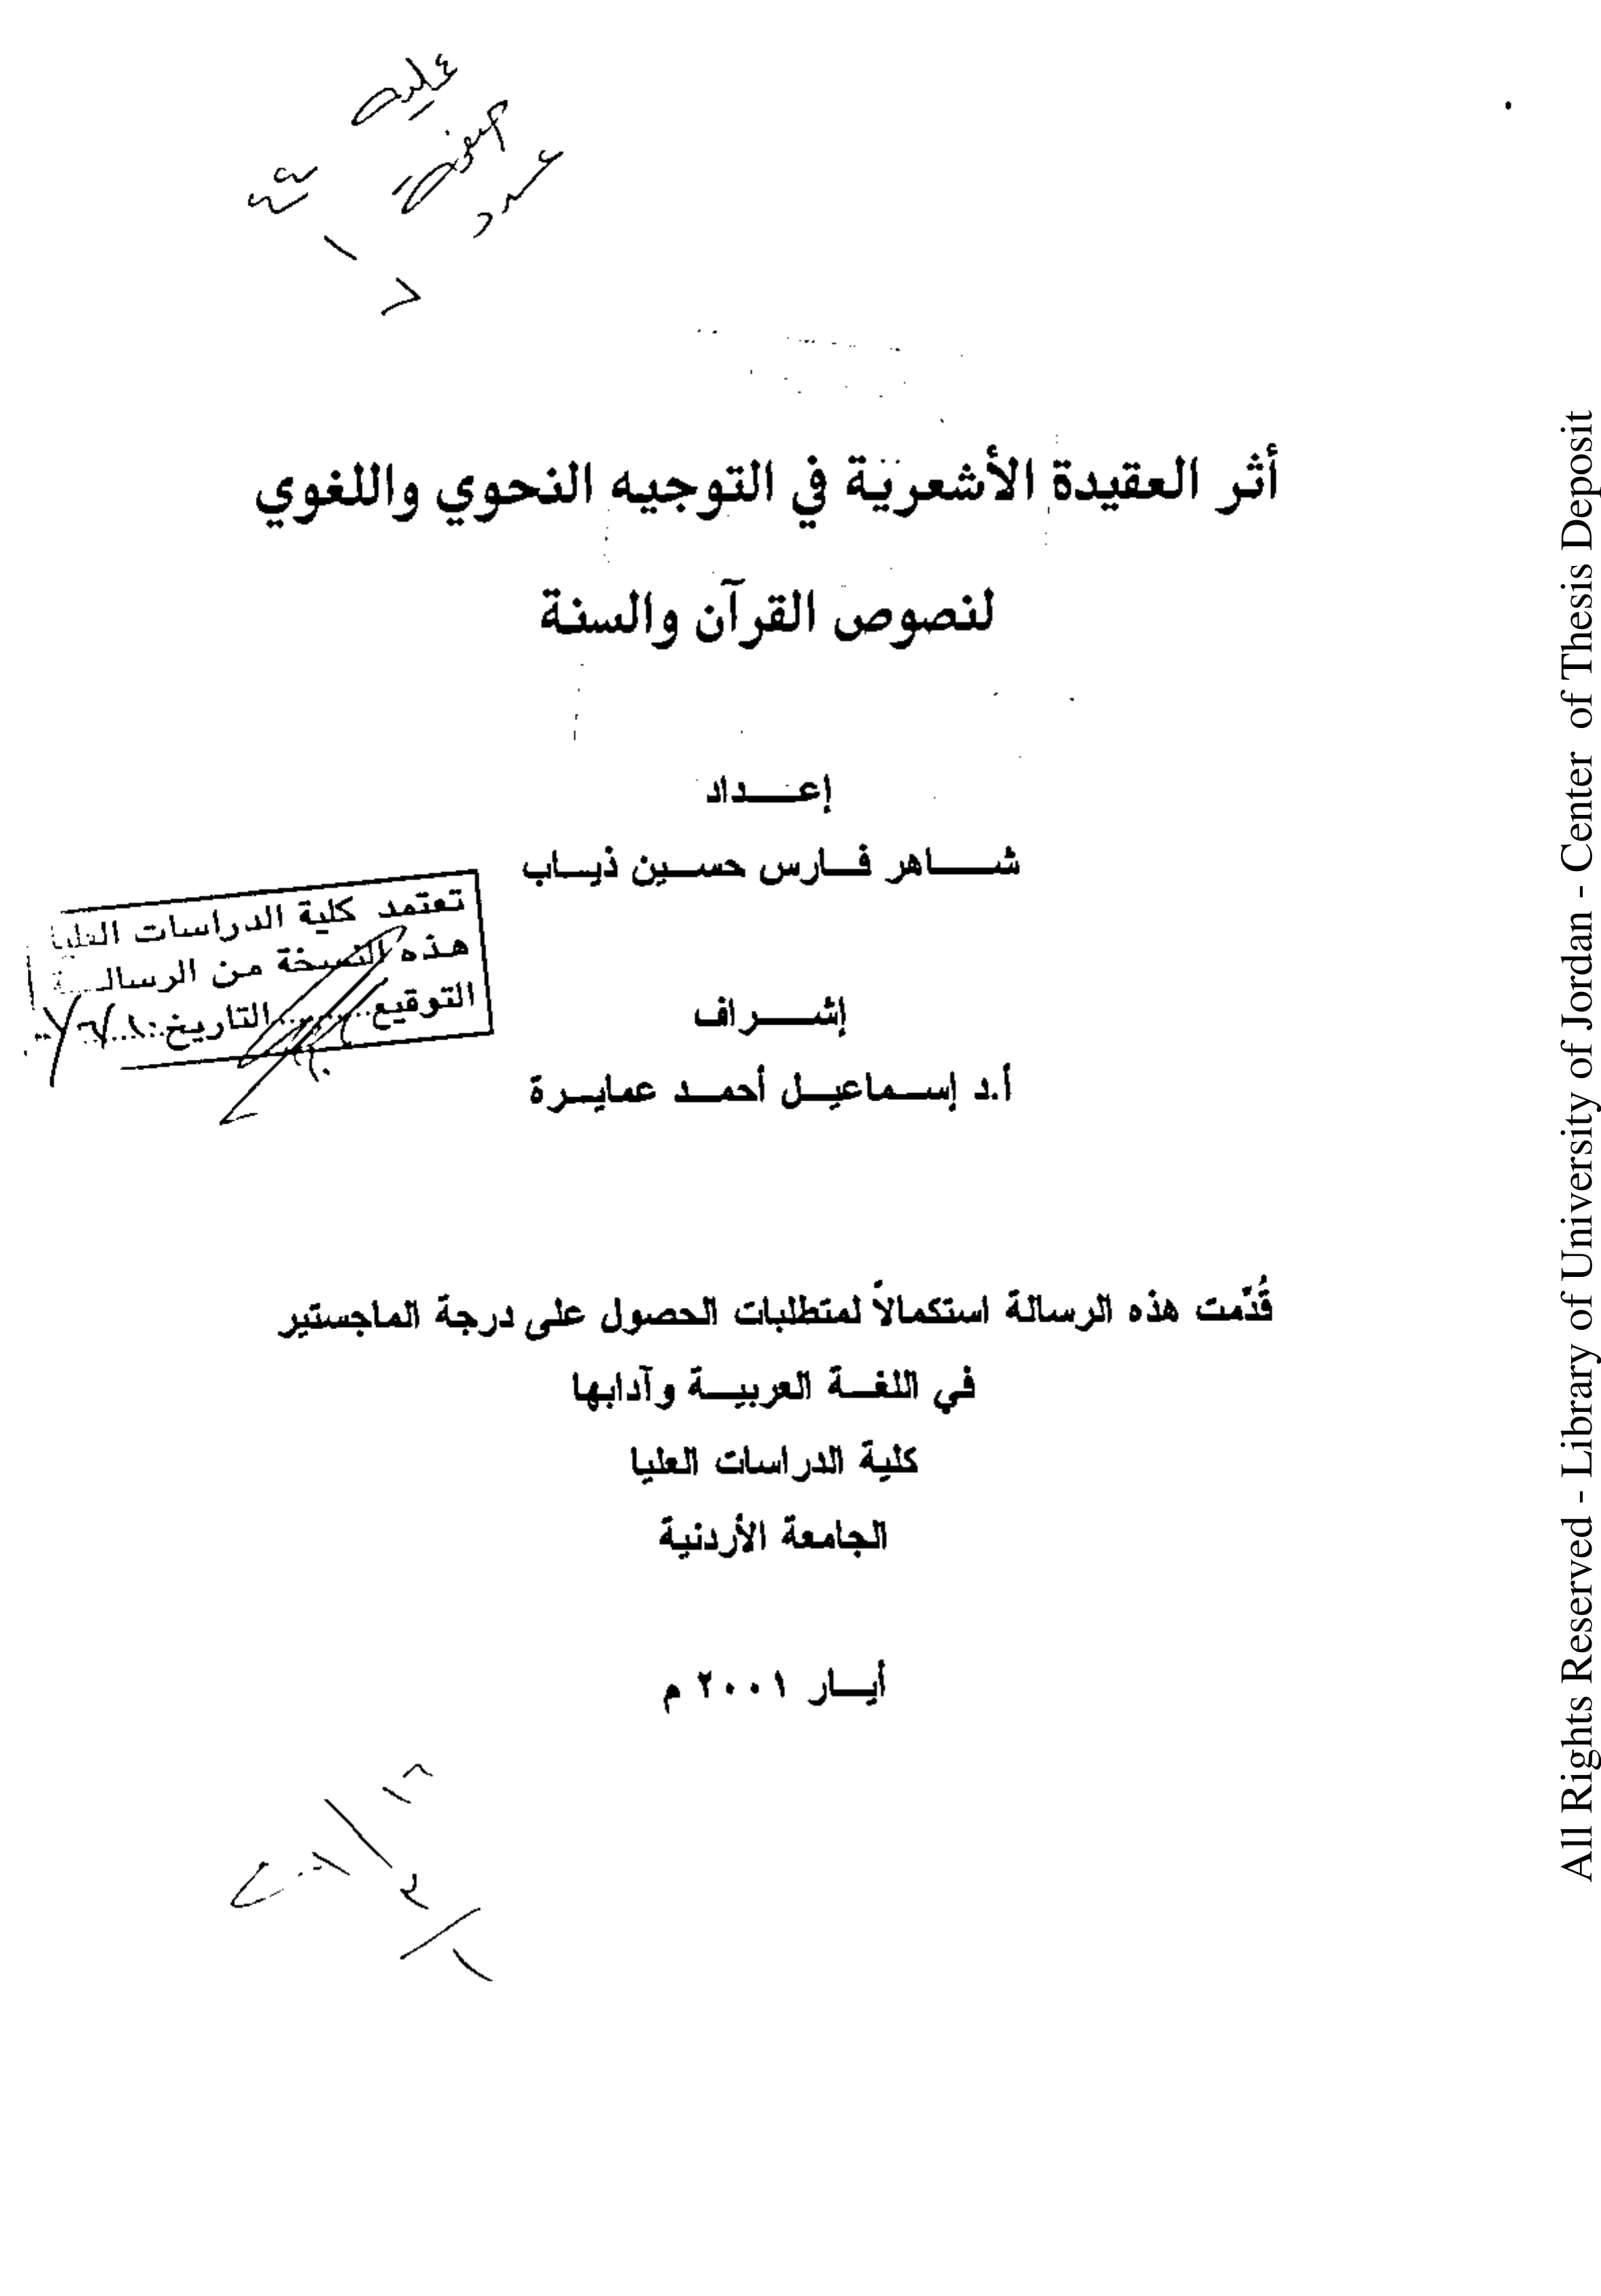 أثر العقيدة الأشعرية في التوجيه النحوي واللغوي
لنصوص القرآن والسنة
إعـــداد
شـــاهر فـــارس حســـين ذيـــاب
تعتمد كلية الدراسات العليا
هذه النسخة من الرسالـــة
التوقيع............التاريخ:
إشـــراف
أ.د إســـماعيـــل أحمـــد عمايـــرة
قُدّمت هذه الرسالة استكمالاً لمتطلبات الحصول على درجة الماجستير
في اللغـــة العربيـــة وآدابها
كلية الدراسات العليا
الجامعة الأردنية
أيـــار ٢٠٠١ م
All Rights Reserved - Library of University of Jordan - Center of Thesis Deposit